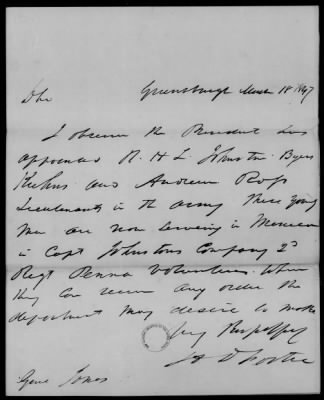 Greensburgh March 18 1847
I observe the President has
appointed R. H. L. Johnston Byers
Kuhns and Andrew Ross
Lieutenants in the army These young
men are now serving in Mexico
in Capt Johnstons Company 2d
Regt Penna Volunteers. Where
they can receive any order the
department may desire to make
Very Respetfy
H D Foster
Genl Jones